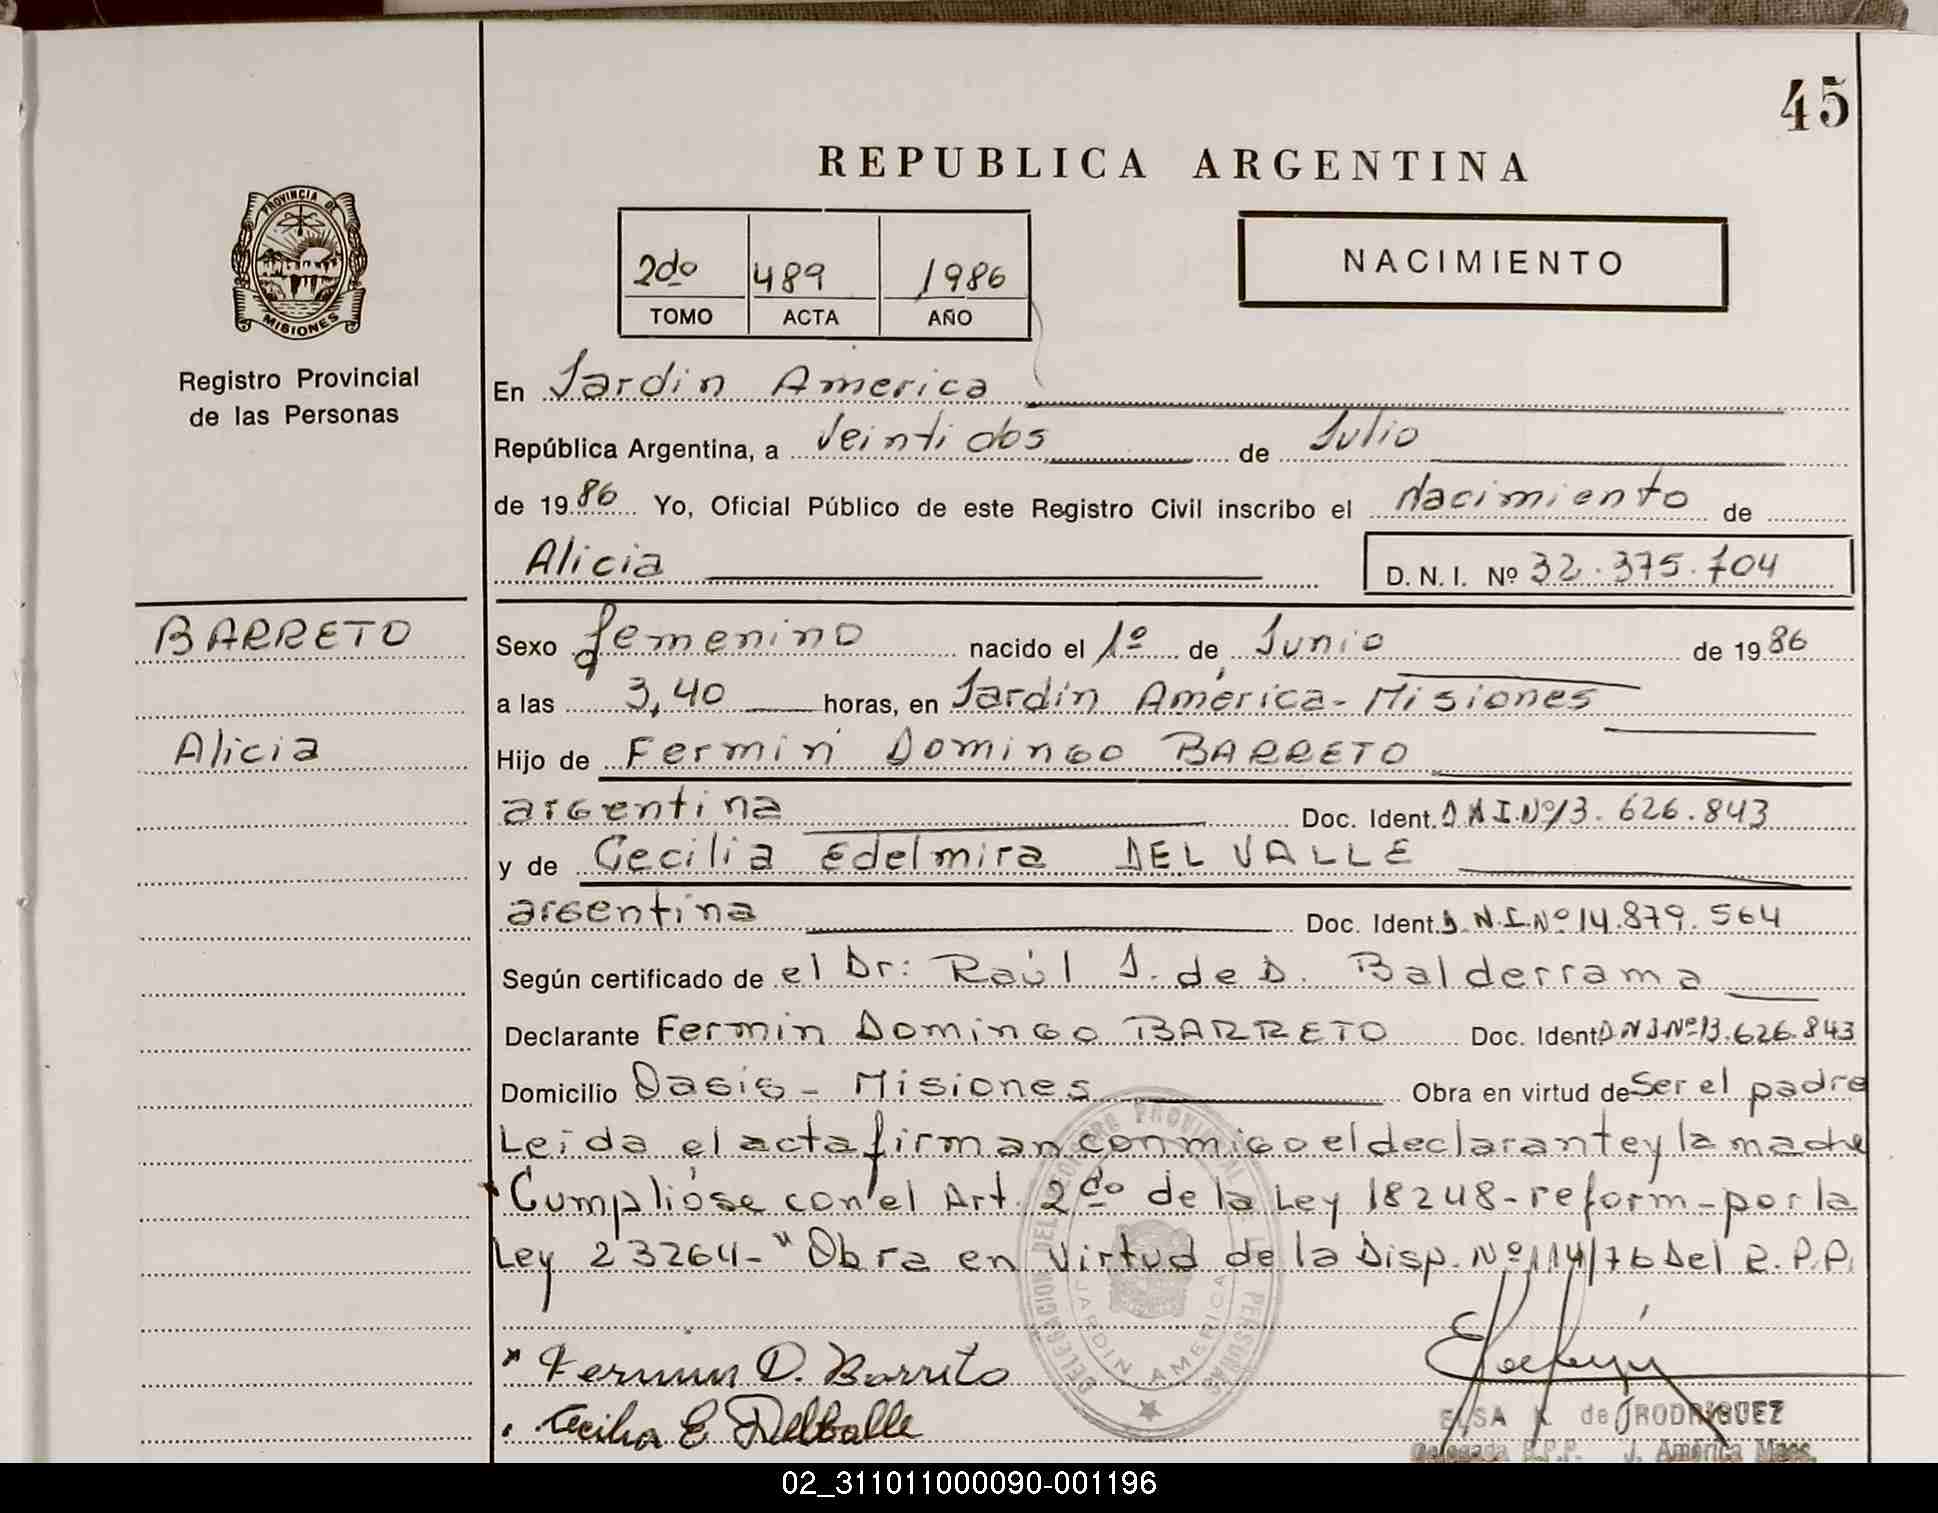 45
REPUBLICA ARGENTINA
PROVINCIA DE
MISIONES
2do 489 1986
TOMO ACTA AÑO
NACIMIENTO
Registro Provincial
de las Personas
En Jardin America
República Argentina, a Veintidos de Julio
de 1986 Yo, Oficial Público de este Registro Civil inscribo el Nacimiento de
Alicia D. N. I. Nº 32.375.704
BARRETO
Alicia
Sexo femenino nacido el 1º de Junio de 1986
a las 3,40 horas, en Jardin América - Misiones
Hijo de Fermin Domingo BARRETO
argentina Doc. Ident. D.N.I.Nº 13.626.843
y de Cecilia Edelmira DEL VALLE
argentina Doc. Ident. D.N.I.Nº 14.879.564
Según certificado de el Dr: Raúl J. de D. Balderrama
Declarante Fermin Domingo BARRETO Doc. Ident. D.N.I.Nº 13.626.843
Domicilio Oasis - Misiones Obra en virtud de Ser el padre
Leida el acta firman conmigo el declarante y la madre
"Cumplióse con el Art. 2do de la Ley 18248-reform-por la
Ley 23264-" Obra en Virtud de la Disp. Nº 114/76 Del R.P.P.
DELEGACION DEL REGISTRO PROVINCIAL DE LAS PERSONAS
JARDIN AMERICA
x Fermin D. Barreto
Cecilia E Delballe
ELSA K. de RODRIGUEZ
Delegada R.P.P. J. América Mnes.
02_311011000090-001196